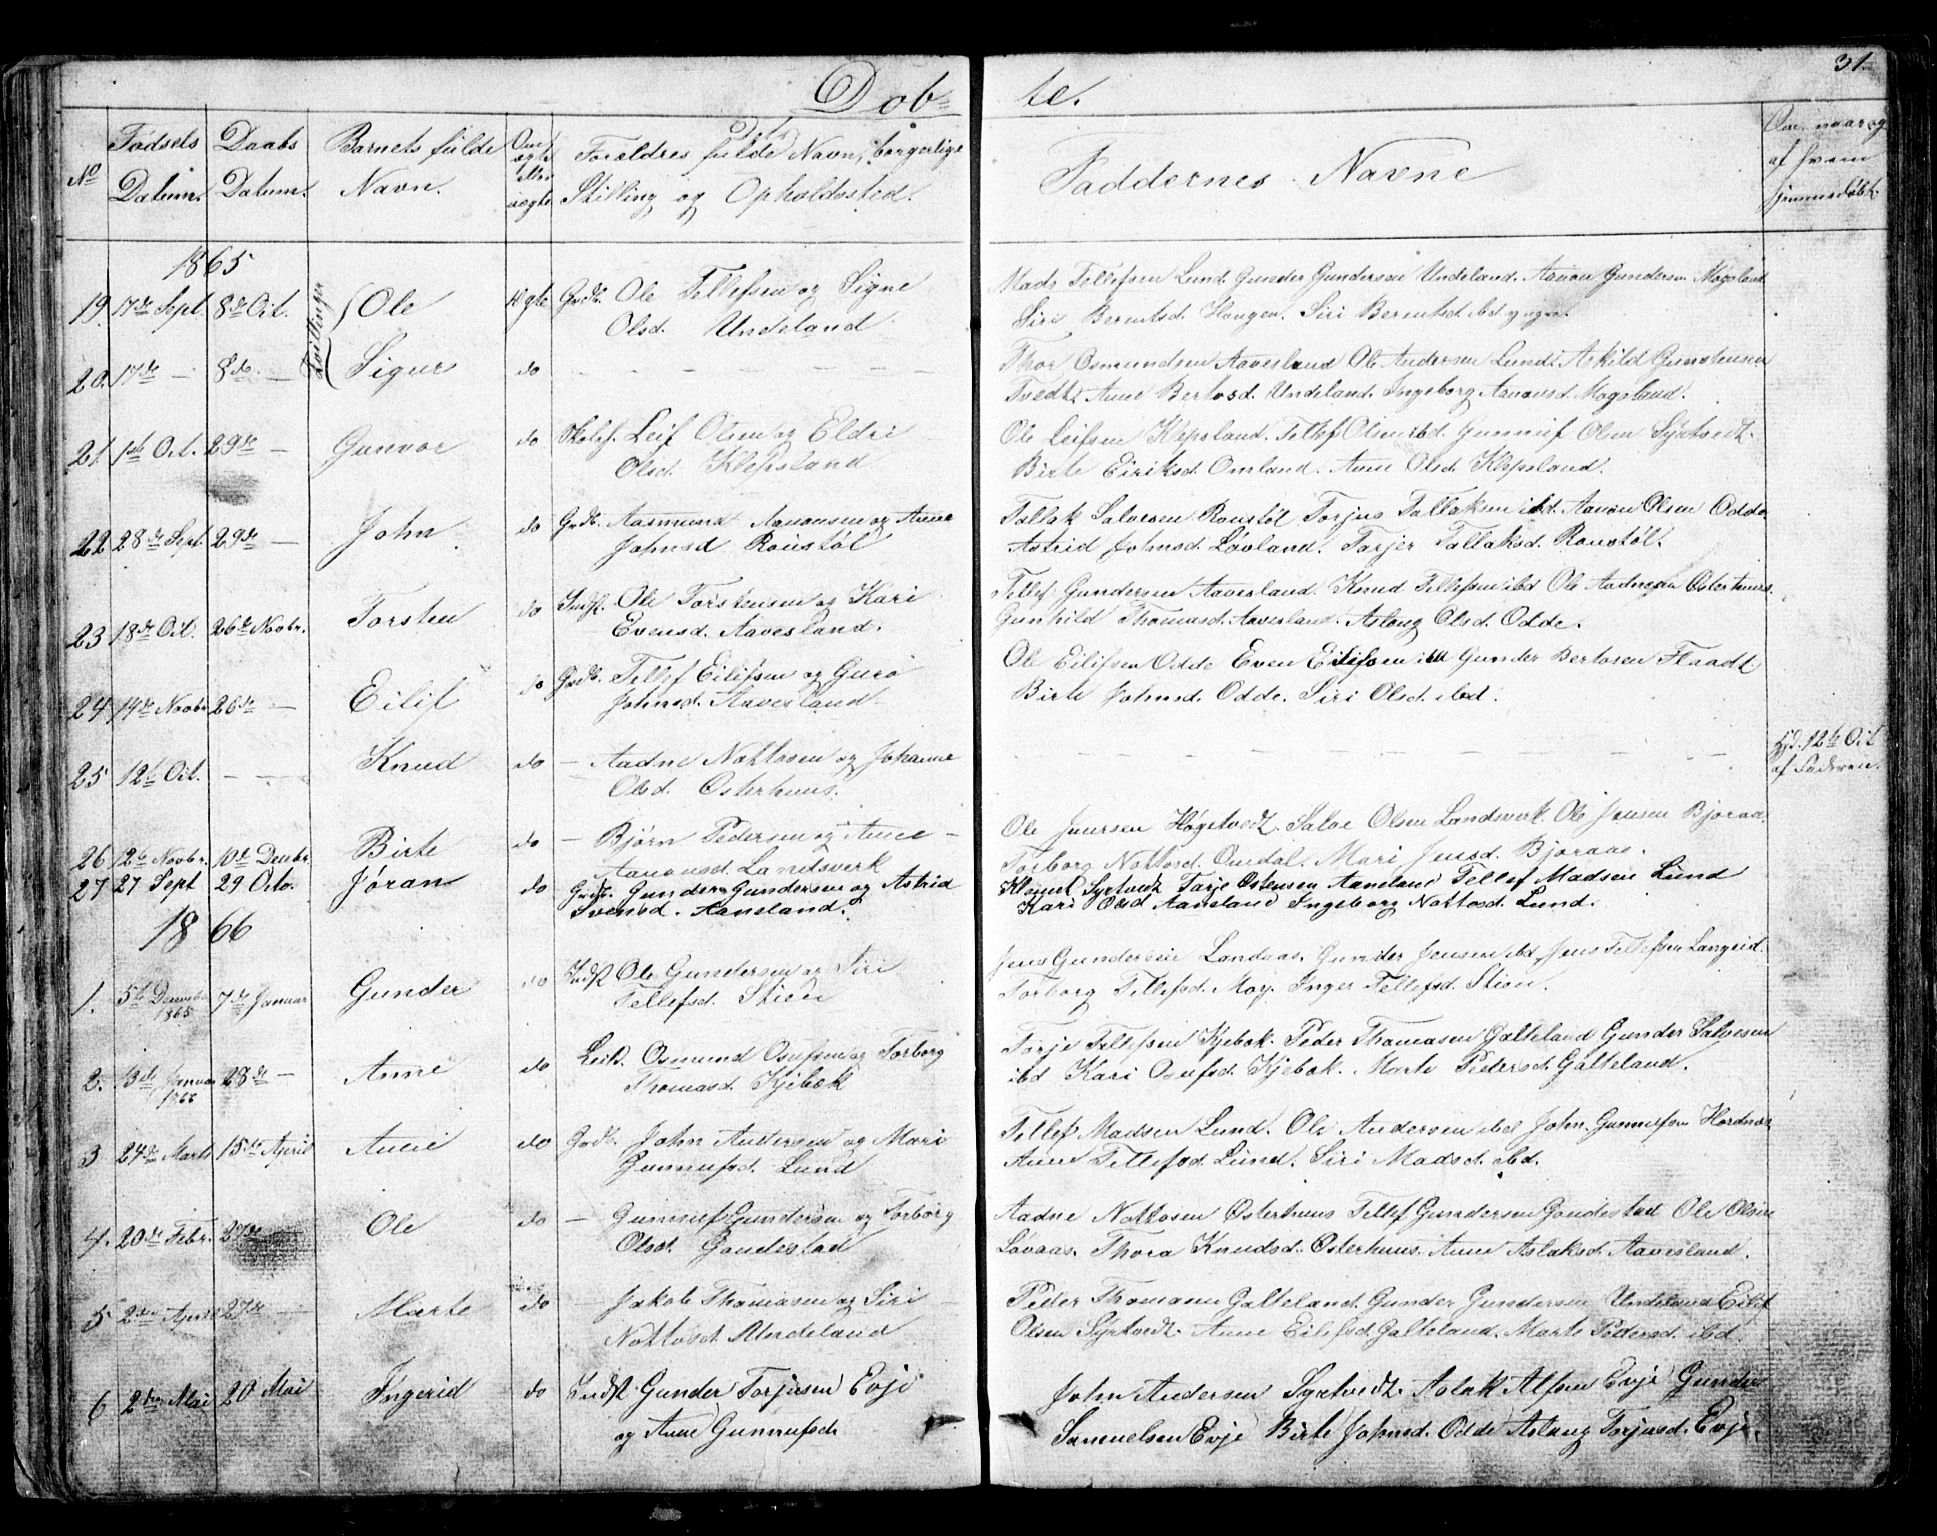 31.
Døb- te.
No Fødsels Datum. Daabs Datum. Barnets fulde Navn. Om ægte eller uægte Forældres fulde Navn, borgerlige Stilling og Opholdssted. Faddernes Navne Om, naar og af hvem hjemmedøbt.
1865
Tvillinger
19. 17de Sept. 8de Oct. Ole Ægte Grdb. Ole Tellefsen og Signe Mads Tellefsen Lund. Gunder Gundersen Undeland. Aanon Gundersen Mogsland
Olsd. Undeland Siri Berntsd. Haugen. Siri Berntsd. ibd yngre.
20. 17de — 8de — Sigur do — — — — Thor Osmundsen Aavesland Ole Andersen Lund. Askild Gunstensen
Tvedt. Anne Bertosd. Undeland. Ingeborg Aanonsd. Mogsland.
21. 1ste Oct. 29de — Gunvor do Skolef. Leif Olsen og Eldri Ole Leifsen Klepsland. Tellef Olsen ibd. Gunnuf Olsen Syrtvedt.
Olsd. Klepsland Birte Eiriksd. Omland. Anne Olsd. Klepsland.
22 28de Sept 29de — John do Grdb. Aasmund Aanonsen og Anne Tallak Salvesen Roustøl Torjus Tallaksen ibd. Aanon Olsen Odde.
Johnsd Roustøl Astrid Johnsd. Løvland. Torjer Tallaksd. Roustøl.
23 18de Oct. 26de Novbr. Torsten do Indst. Ole Torstensen og Kari Tellef Gundersen Aavesland. Knud Tellefsen ibd Ole Aadnesen Osterhuus.
Evensd. Aavesland. Gunhild Thomasd. Aavesland. Aslaug Olsd. Odde.
24 19de Novbr 26de — Eilif do Grdb. Tellef Eilifsen og Guro Ole Eilifsen Odde Even Eilifsen ibd Gunder Bertosen Flaadt
Johnsd. Aavesland. Birte Johnsd. Odde. Siri Olsd. ibd.
25 12te Oct. — — Knud do — Aadne Nottosen og Johanne — — — — Hjd. 12te Oct
Olsd. Osterhuus. af Faderen.
26 12te Novbr. 10de Decbr. Birte do — Bjørn Pedersen og Anne — Ole Jensen Høgetvedt. Salve Olsen Landsverk. Ole Jensen Bjoraa.
Aanonsd. Landsverk Torborg Nottosd. Omdal. Mari Jensd. Bjoraae.
27 27 Sept 29 Octo. Jøran do Grdb. Gunder Gundersen og Astrid Syrtvedt Tarje Ostensen Aaneland Tellef Madsen Lund
Svensd. Aaneland. Kari Olsd Aaneland Ingeborg Nottosd. Lund.
1866
1. 5te Decembr 1865 7de Januar Gunder do Indst Ole Gundersen og Siri Jens Gundersen Landaas. Gunder Jensen ibd Jens Tellefsen Langeid.
Tellefsd. Stien Torborg Tellefsd. Moy. Inger Tellefsd. Stien.
2. 3de Januar 1866 28de — Anne do Leil. Osmund Osufsen og Torborg Torje Tellefsen Kjebok. Peder Thomasen Galteland Gunder Salvesen
Thomasd. Kjebok ibd Kari Osufsd. Kjebok. Marte Pedersd. Galteland.
3 24de Marts 15de April Anne do Grdb. John Andersen og Mari Tellef Madsen Lund. Ole Andersen ibd John Gunnufsen Hordnæs
Gunnufsd. Lund Anne Tellefsd. Lund. Siri Madsd. ibd.
4. 20de Febr. 27de Ole do — Gunnuf Gundersen og Torborg Aadne Nottosen Osterhuus Tellef Gundersen Gaudestad Ole Olsen
Olsd. Gaudestad Løvaas. Thora Knudsd. Osterhuus. Anne Aslaksd. Aavesland.
5 2den April 27de — Marte do — Jakob Thomasen og Siri Peder Thomasen Galteland. Gunder Gundersen Undeland Eilif
Nottosd. Undeland Olsen Syrtvedt. Anne Eilefsd. Galteland. Marte Pedersd. ibd.
6 2den Mai 20 Mai Ingerid do Indst. Gunder Torjusen Evje John Andersen Syrtvedt. Aslak Alfsen Evje Gunder
og Anne Gunnufsd. Samuelsen Evje Birte Johnsd. Odde Aslaug Torjusd. Evje.